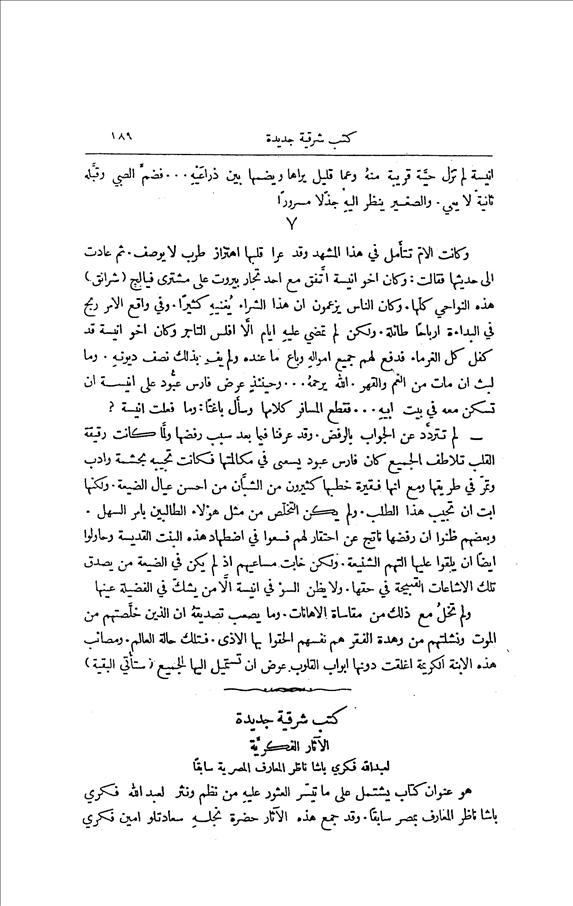 كتب شرقية جديدة ١٨٩
انيسة لم تزل حيَّة قريبة منهُ وعما قليل يراها ويضمها بين ذراعَيْهِ ٠٠٠ فضمَّ الصبي وقبَّلهُ
ثانية لا يعي٠ والصغير ينظر اليهِ جذلًا مسرورًا
٧
وكانت الامّ تتأمل في هذا المشهد وقد عرا قلبها اهتزاز طرب لا يوصف٠ ثم عادت
الى حديثها فقالت : وكان اخو انيسة اتَّفق مع احد تجار بيروت على مشترى فيالج (شرانق)
هذه النواحي كلها٠ وكان الناس يزعمون ان هذا الشراء يُغنيهِ كثيرًا٠ وفي واقع الامر ربح
في البداءة ارباحًا طائلة٠ ولكن لم تمضي عليهِ ايام الَّا افلس التاجر وكان اخو انيسة قد
كفل كل الغرماء فدفع لهم جميع اموالهِ وباع ما عنده ولم يفِ بذلك نصف ديونهِ ٠ وما
لبث ان مات من الغم والقهر ٠ الله يرحمهُ ٠٠٠ وحينئذٍ عرض فارس عبُّود على انيسة ان
تسكن معه في بيت ابيهِ ٠٠٠ فقطع المسافر كلامها وسأل باغتًا : وما فعلت انيسة ؟
ـ لم تتردَّد عن الجواب بالرفض٠ وقد عرفنا فيما بعد سبب رفضها ولمَّا كانت رقيقة
القلب تلاطف الجميع كان فارس عبود يسعى في مكالمتها فكانت تجيبه بحشمة وادب
وتمرّ في طريقها ومع انها فقيرة خطبها كثيرون من الشبَّان من احسن عيال الضيعة٠ ولكنها
ابت ان تجيب هذا الطلب٠ ولم يكن التخلّص من مثل هؤلاء الطالبين بامر السهل ٠
وبعضهم ظنوا ان رفضها ناتج عن احتقار لهم فسعوا في اضطهاد هذه البنت القديسة وحاولوا
ايضًا ان يلقوا عليها التهم الشنيعة٠ ولكن خابت مساعيهم اذ لم يكن في الضيعة من يصدق
تلك الاشاعات القبيحة في حقها٠ ولا يظن السوْ في انيسة الَّا من يشكّ في الفضيلة عينها
ولم تخلُ مع ذلك من مقاساة الاهانات٠ وما يصعب تصديقهُ ان الذين خلَّصتهم من
الموت ونشلتهم من وهدة الفقر هم نفسهم الحقوا بها الاذى٠ فتلك حالة العالم٠ ومصائب
هذه الابنة الكريمة اغلقت دونها ابواب القلوب عوض ان تستميل اليها الجميع (ستأتي البقية)
كتب شرقية جديدة
الآثار الفكريَّة
لعبدالله فكري باشا ناظر المعارف المصرية سابقًا
هو عنوان كتاب يشتمل على ما تيسّر العثور عليهِ من نظم ونثر لعبد الله فكري
باشا ناظر المعارف بمصر سابقًا٠ وقد جمع هذه الآثار حضرة نجلهِ سعادتلو امين فكري